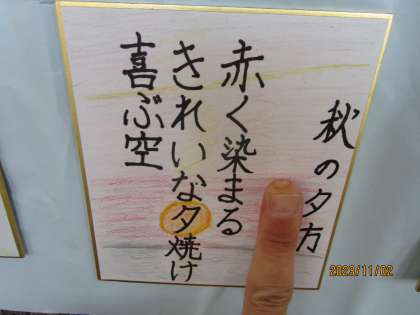 秋の夕方
赤く染まる
きれいな夕焼け
喜ぶ空
2023/11/02